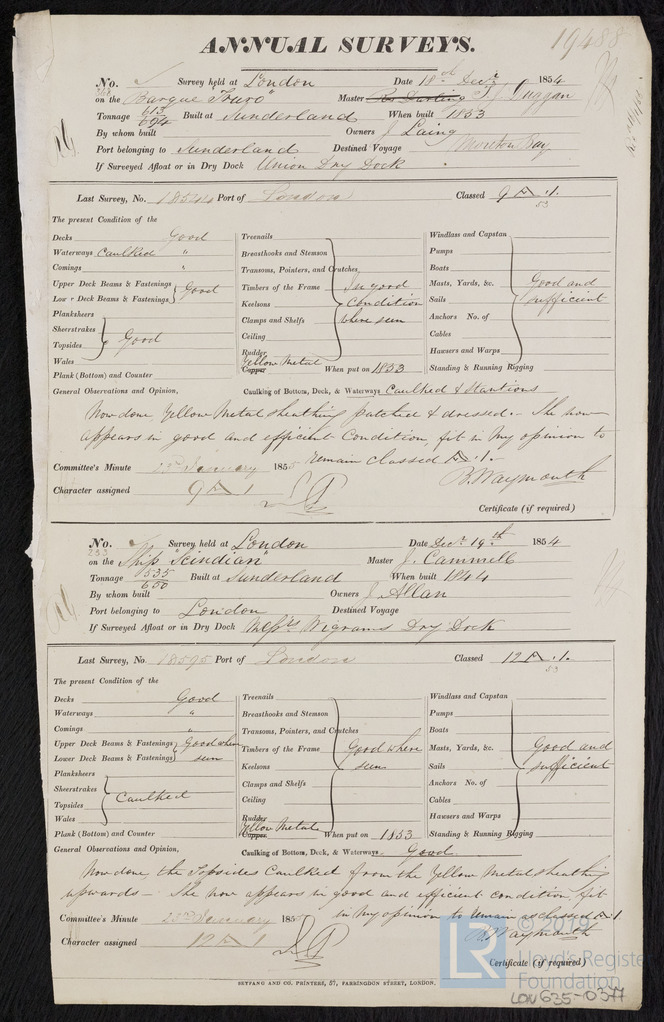 ANNUAL SURVEYS.
19488
No. Survey held at London Date 18th Decr 1854
368 on the Barque "Truro" Master R. Darling J. Duggan
Tonnage 613 694 Built at Sunderland When built 1853
By whom built Owners J Laing
Port belonging to Sunderland Destined Voyage Moreton Bay
If Surveyed Afloat or in Dry Dock Union Dry Dock
Last Survey, No. Port of London Classed 9 A.1. 53
The present Condition of the
Decks Good
Waterways Caulked "
Comings "
Upper Deck Beams & Fastenings
Lower Deck Beams & Fastenings Good
Planksheers
Sheerstrakes
Topsides Good
Wales
Plank (Bottom) and Counter
Treenails
Breasthooks and Stemson
Transoms, Pointers, and Crutches
Timbers of the Frame In good
Keelsons condition
Clamps and Shelfs where seen
Ceiling
Rudder
Yellow Metal
Copper When put on 1853
Windlass and Capstan
Pumps
Boats
Masts, Yards, &c. Good and
Sails sufficient
Anchors No. of
Cables
Hawsers and Warps
Standing & Running Rigging
General Observations and Opinion, Caulking of Bottom, Deck, & Waterways Caulked & Stantions
Now done Yellow Metal sheathing patched & dressed.- She now
appears in good and efficient Condition, fit in my opinion to
remain classed A.1.
Committee's Minute 23rd January 1855 B. Waymouth
Character assigned 9 A 1
Certificate (if required)
No. Survey held at London Date Decr 19th 1854
233 on the Ship "Scindian" Master J. Cammell
Tonnage 535 650 Built at Sunderland When built 1844
By whom built Owners J Allan
Port belonging to London Destined Voyage
If Surveyed Afloat or in Dry Dock Messrs Wigrams Dry Dock
Last Survey, No. 18595 Port of London Classed 12 A.1. 53
The present Condition of the
Decks Good
Waterways "
Comings "
Upper Deck Beams & Fastenings Good where
Lower Deck Beams & Fastenings seen
Planksheers
Sheerstrakes
Topsides Caulked
Wales
Plank (Bottom) and Counter
Treenails
Breasthooks and Stemson
Transoms, Pointers, and Crutches
Timbers of the Frame Good where
Keelsons seen
Clamps and Shelfs
Ceiling
Rudder
Yellow Metal
Copper When put on 1853
Windlass and Capstan
Pumps
Boats
Masts, Yards, &c. Good and
Sails sufficient
Anchors No. of
Cables
Hawsers and Warps
Standing & Running Rigging
General Observations and Opinion, Caulking of Bottom, Deck, & Waterways Good
Now done, the Topsides Caulked from the Yellow Metal sheathing
upwards - She now appears in good and efficient condition, fit
in my opinion to remain as classed A.1
Committee's Minute 23rd January 1855 B. Waymouth
Character assigned 12 A 1
Certificate (if required)
SEYFANG AND CO. PRINTERS, 57, FARRINGDON STREET, LONDON.
© 2019
LR Lloyd's Register
Foundation
LON635-0377